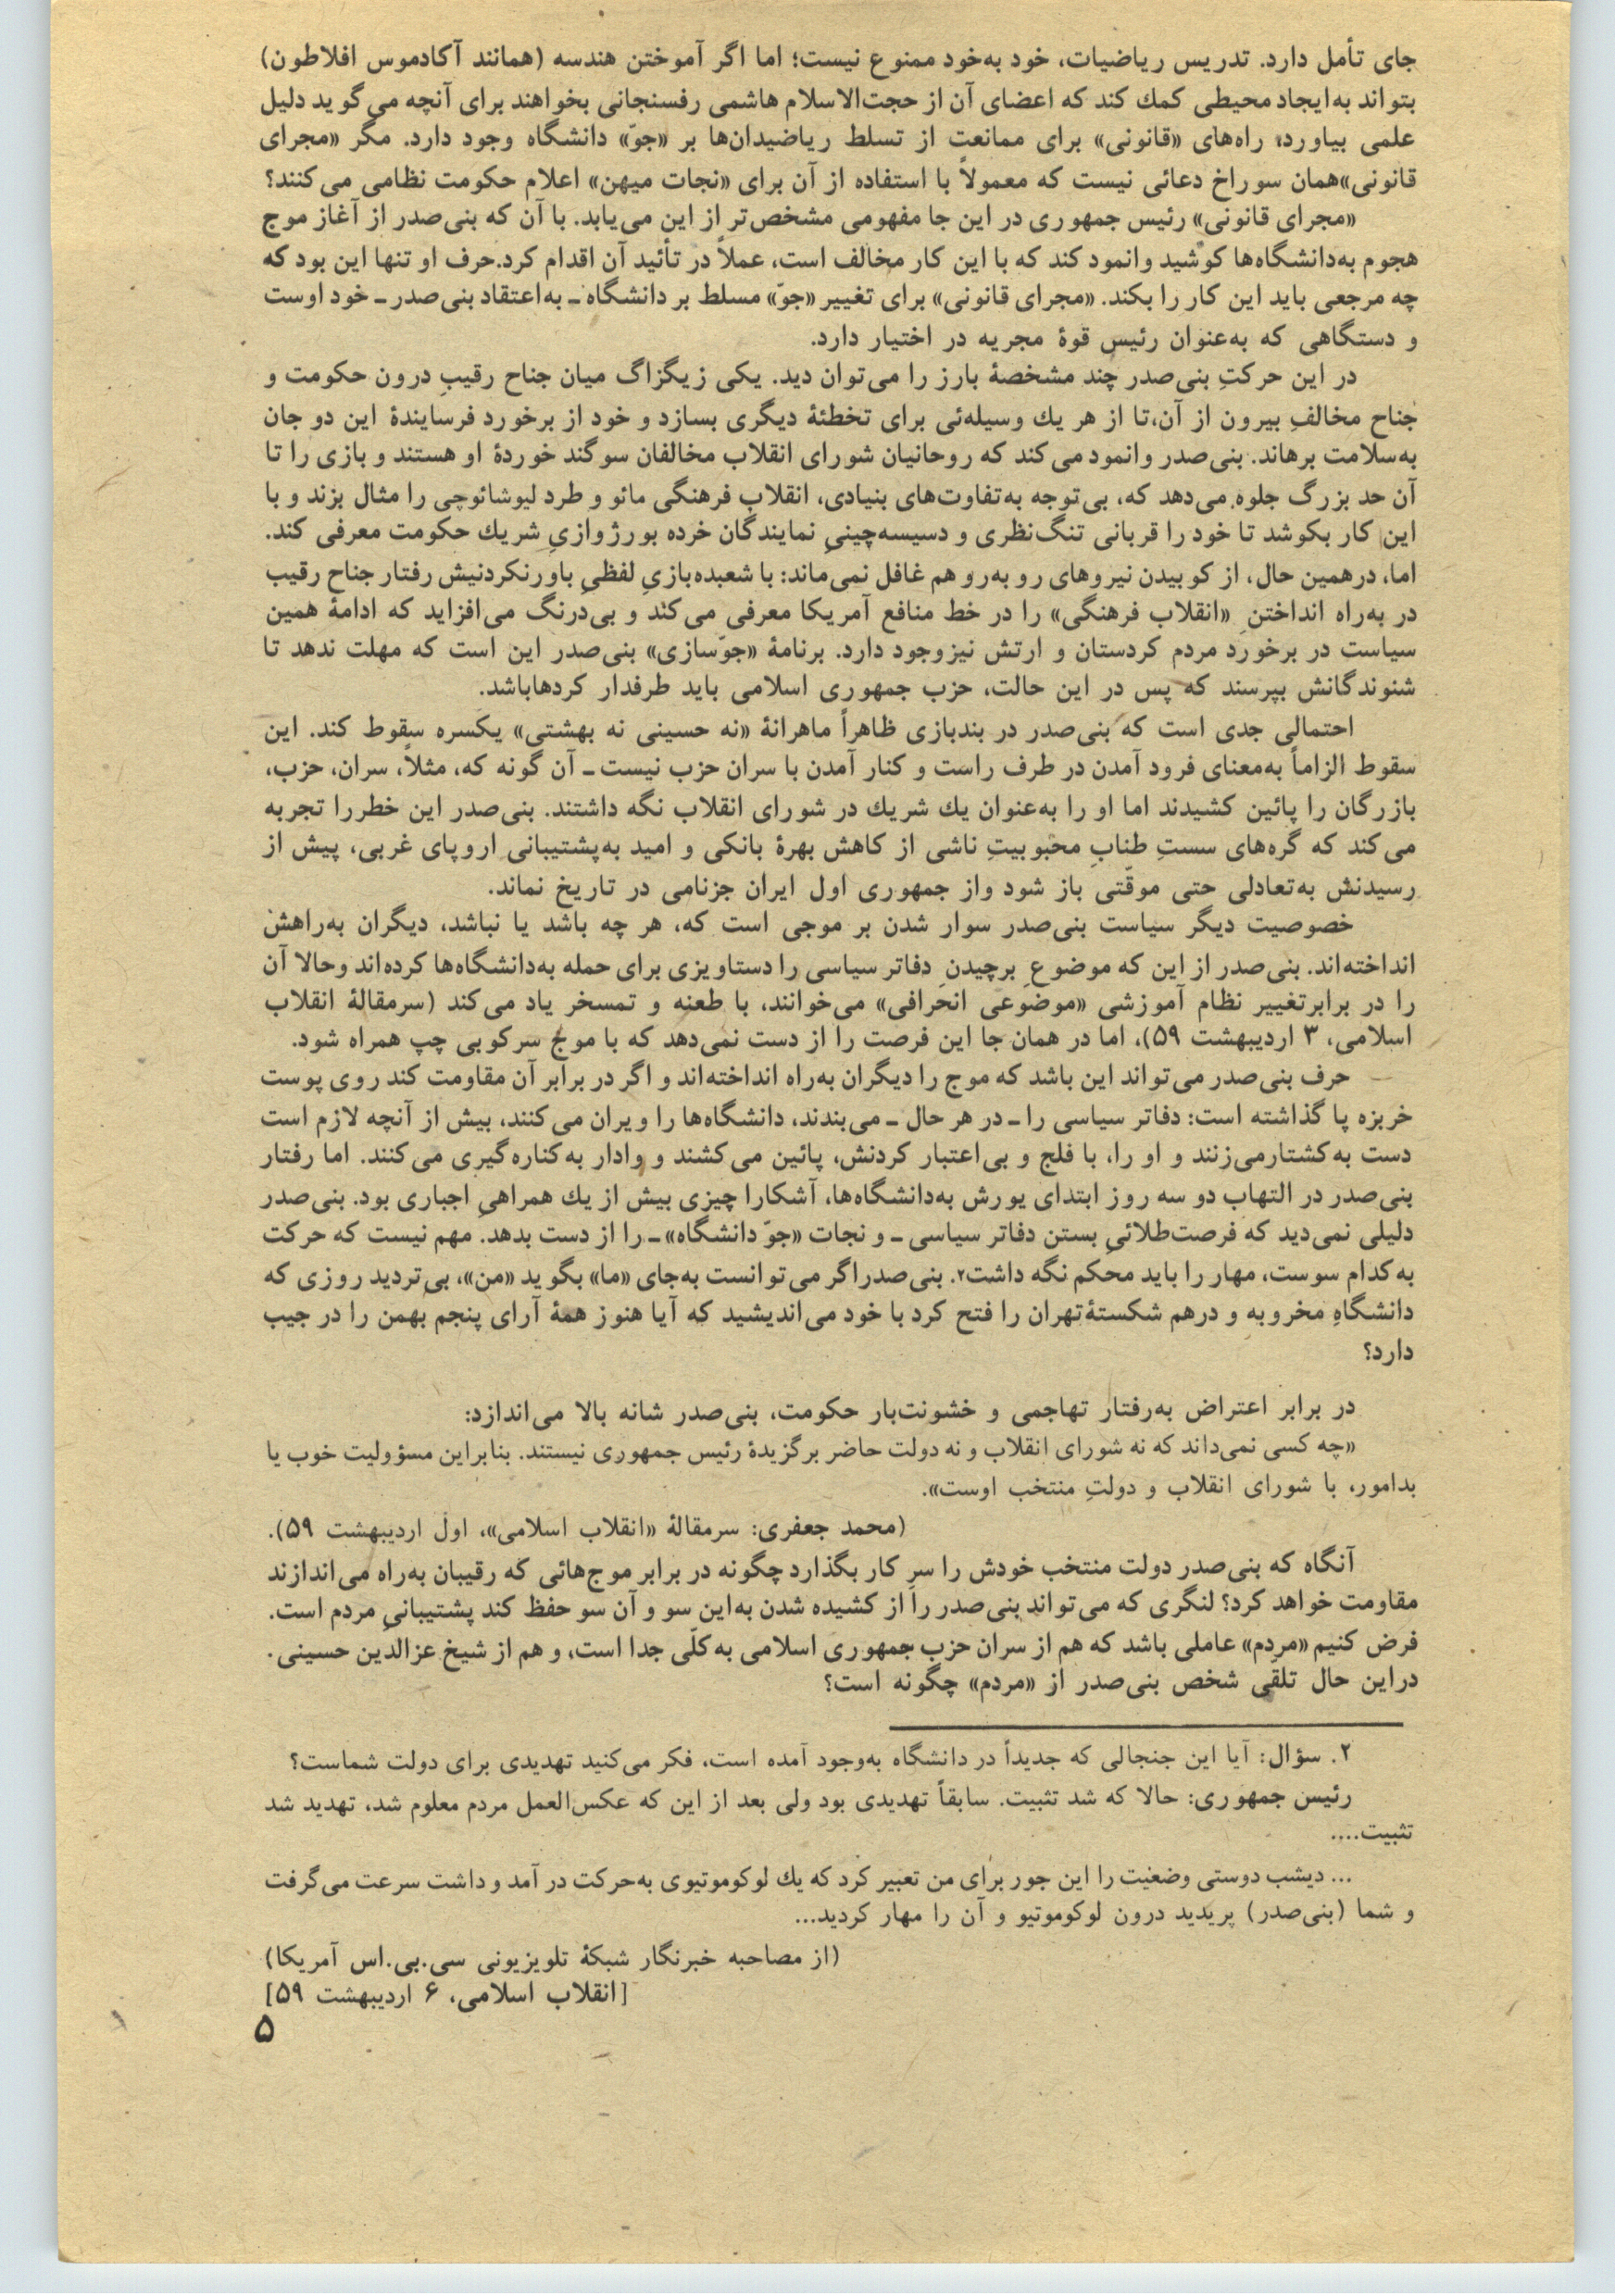 جای تأمل دارد. تدریس ریاضیات، خود به‌خود ممنوع نیست؛ اما اگر آموختن هندسه (همانند آکادموس افلاطون)
بتواند به‌ایجاد محیطی کمك کند که اعضای آن از حجت‌الاسلام هاشمی رفسنجانی بخواهند برای آنچه می‌گوید دلیل
علمی بیاورد، راه‌های «قانونی» برای ممانعت از تسلط ریاضیدان‌ها بر «جوّ» دانشگاه وجود دارد. مگر «مجرای
قانونی»همان سوراخ دعائی نیست که معمولاً با استفاده از آن برای «نجات میهن» اعلام حکومت نظامی می‌کنند؟
«مجرای قانونی» رئیس جمهوری در این جا مفهومی مشخص‌تر از این می‌یابد. با آن که بنی‌صدر از آغاز موج
هجوم به‌دانشگاه‌ها کوشید وانمود کند که با این کار مخالف است، عملاً در تأئید آن اقدام کرد.حرف او تنها این بود که
چه مرجعی باید این کار را بکند. «مجرای قانونی» برای تغییر «جوّ» مسلط بر دانشگاه ـ به‌اعتقاد بنی‌صدر ـ خود اوست
و دستگاهی که به‌عنوان رئیس قوهٔ مجریه در اختیار دارد.
در این حرکتِ بنی‌صدر چند مشخصهٔ بارز را می‌توان دید. یکی زیگزاگ میان جناح رقیبِ درون حکومت و
جناح مخالفِ بیرون از آن،تا از هر یك وسیله‌ئی برای تخطئهٔ دیگری بسازد و خود از برخورد فرسایندهٔ این دو جان
به‌سلامت برهاند. بنی‌صدر وانمود می‌کند که روحانیان شورای انقلاب مخالفان سوگند خوردهٔ او هستند و بازی را تا
آن حد بزرگ جلوه می‌دهد که، بی‌توجه به‌تفاوت‌های بنیادی، انقلاب فرهنگی مائو و طرد لیوشائوچی را مثال بزند و با
این کار بکوشد تا خود را قربانی تنگ‌نظری و دسیسه‌چینیِ نمایندگان خرده بورژوازیِ شریك حکومت معرفی کند.
اما، درهمین حال، از کوبیدن نیروهای رو به‌رو هم غافل نمی‌ماند: با شعبده‌بازیِ لفظیِ باورنکردنیش رفتار جناح رقیب
در به‌راه انداختنِ «انقلاب فرهنگی» را در خط منافع آمریکا معرفی می‌کند و بی‌درنگ می‌افزاید که ادامهٔ همین
سیاست در برخورد مردم کردستان و ارتش نیزوجود دارد. برنامهٔ «جوّسازی» بنی‌صدر این است که مهلت ندهد تا
شنوندگانش بپرسند که پس در این حالت، حزب جمهوری اسلامی باید طرفدار کردهاباشد.
احتمالی جدی است که بنی‌صدر در بندبازی ظاهراً ماهرانهٔ «نه حسینی نه بهشتی» یکسره سقوط کند. این
سقوط الزاماً به‌معنای فرود آمدن در طرف راست و کنار آمدن با سران حزب نیست ـ آن گونه که، مثلاً، سران، حزب،
بازرگان را پائین کشیدند اما او را به‌عنوان یك شریك در شورای انقلاب نگه داشتند. بنی‌صدر این خطررا تجربه
می‌کند که گره‌های سستِ طنابِ محبوبیتِ ناشی از کاهش بهرهٔ بانکی و امید به‌پشتیبانی اروپای غربی، پیش از
رسیدنش به‌تعادلی حتی موقّتی باز شود واز جمهوری اول ایران جزنامی در تاریخ نماند.
خصوصیت دیگر سیاست بنی‌صدر سوار شدن بر موجی است که، هر چه باشد یا نباشد، دیگران به‌راهش
انداخته‌اند. بنی‌صدر از این که موضوعِ برچیدنِ دفاتر سیاسی را دستاویزی برای حمله به‌دانشگاه‌ها کرده‌اند وحالا آن
را در برابرتغییر نظام آموزشی «موضوعی انحرافی» می‌خوانند، با طعنه و تمسخر یاد می‌کند (سرمقالهٔ انقلاب
اسلامی، ۳ اردیبهشت ۵۹)، اما در همان جا این فرصت را از دست نمی‌دهد که با موج سرکوبی چپ همراه شود.
حرف بنی‌صدر می‌تواند این باشد که موج را دیگران به‌راه انداخته‌اند و اگر در برابر آن مقاومت کند روی پوست
خربزه پا گذاشته است: دفاتر سیاسی را ـ در هر حال ـ می‌بندند، دانشگاه‌ها را ویران می‌کنند، بیش از آنچه لازم است
دست به‌کشتارمی‌زنند و او را، با فلج و بی‌اعتبار کردنش، پائین می‌کشند و وادار به‌کناره‌گیری می‌کنند. اما رفتار
بنی‌صدر در التهاب دو سه روز ابتدای یورش به‌دانشگاه‌ها، آشکارا چیزی بیش از یك همراهیِ اجباری بود. بنی‌صدر
دلیلی نمی‌دید که فرصت‌طلائیِ بستن دفاتر سیاسی ـ و نجات «جوّ دانشگاه» ـ را از دست بدهد. مهم نیست که حرکت
به‌کدام سوست، مهار را باید محکم نگه داشت۲. بنی‌صدراگر می‌توانست به‌جای «ما» بگوید «من»، بی‌تردید روزی که
دانشگاهِ مخروبه و درهم شکستهٔ‌تهران را فتح کرد با خود می‌اندیشید که آیا هنوز همهٔ آرای پنجم بهمن را در جیب
دارد؟
در برابر اعتراض به‌رفتار تهاجمی و خشونت‌بار حکومت، بنی‌صدر شانه بالا می‌اندازد:
«چه کسی نمی‌داند که نه شورای انقلاب و نه دولت حاضر برگزیدهٔ رئیس جمهوری نیستند. بنابراین مسؤولیت خوب یا
بدامور، با شورای انقلاب و دولتِ منتخب اوست».
(محمد جعفری: سرمقالهٔ «انقلاب اسلامی»، اول اردیبهشت ۵۹).
آنگاه که بنی‌صدر دولت منتخب خودش را سرِ کار بگذارد چگونه در برابر موج‌هائی که رقیبان به‌راه می‌اندازند
مقاومت خواهد کرد؟ لنگری که می‌تواند بنی‌صدر را از کشیده شدن به‌این سو و آن سو حفظ کند پشتیبانیِ مردم است.
فرض کنیم «مردم» عاملی باشد که هم از سران حزب جمهوری اسلامی به‌کلّی جدا است، و هم از شیخ عزالدین حسینی.
دراین حال تلقی شخص بنی‌صدر از «مردم» چگونه است؟
۲. سؤال: آیا این جنجالی که جدیداً در دانشگاه به‌وجود آمده است، فکر می‌کنید تهدیدی برای دولت شماست؟
رئیس جمهوری: حالا که شد تثبیت. سابقاً تهدیدی بود ولی بعد از این که عکس‌العمل مردم معلوم شد، تهدید شد
تثبیت....
... دیشب دوستی وضعیت را این جور برای من تعبیر کرد که یك لوکوموتیوی به‌حرکت در آمد و داشت سرعت می‌گرفت
و شما (بنی‌صدر) پریدید درون لوکوموتیو و آن را مهار کردید...
(از مصاحبه خبرنگار شبکهٔ تلویزیونی سی.بی.اس آمریکا)
[انقلاب اسلامی، ۶ اردیبهشت ۵۹]
۵